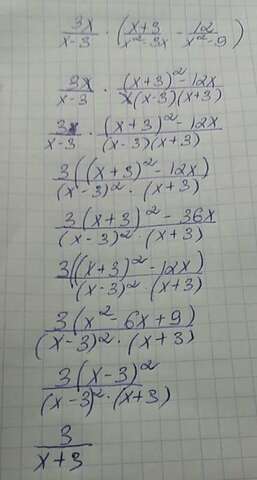 3x/(x-3) · ((x+3)/(x²-3x) - 12/(x²-9))
3x/(x-3) · ((x+3)²-12x)/(x(x-3)(x+3))
3x/(x-3) · ((x+3)²-12x)/((x-3)(x+3))
3((x+3)²-12x)/((x-3)²·(x+3))
3(x+3)²-36x/((x-3)²·(x+3))
3((x+3)²-12x)/((x-3)²·(x+3))
3(x²-6x+9)/((x-3)²·(x+3))
3(x-3)²/((x-3)²·(x+3))
3/(x+3)